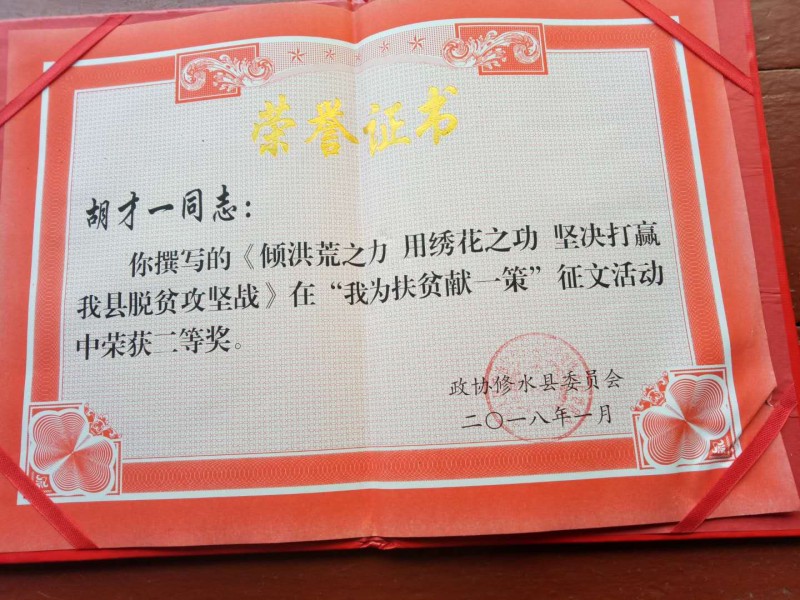 荣誉证书
胡才一同志：
你撰写的《倾洪荒之力 用绣花之功 坚决打赢
我县脱贫攻坚战》在“我为扶贫献一策”征文活动
中荣获二等奖。
政协修水县委员会
二〇一八年一月